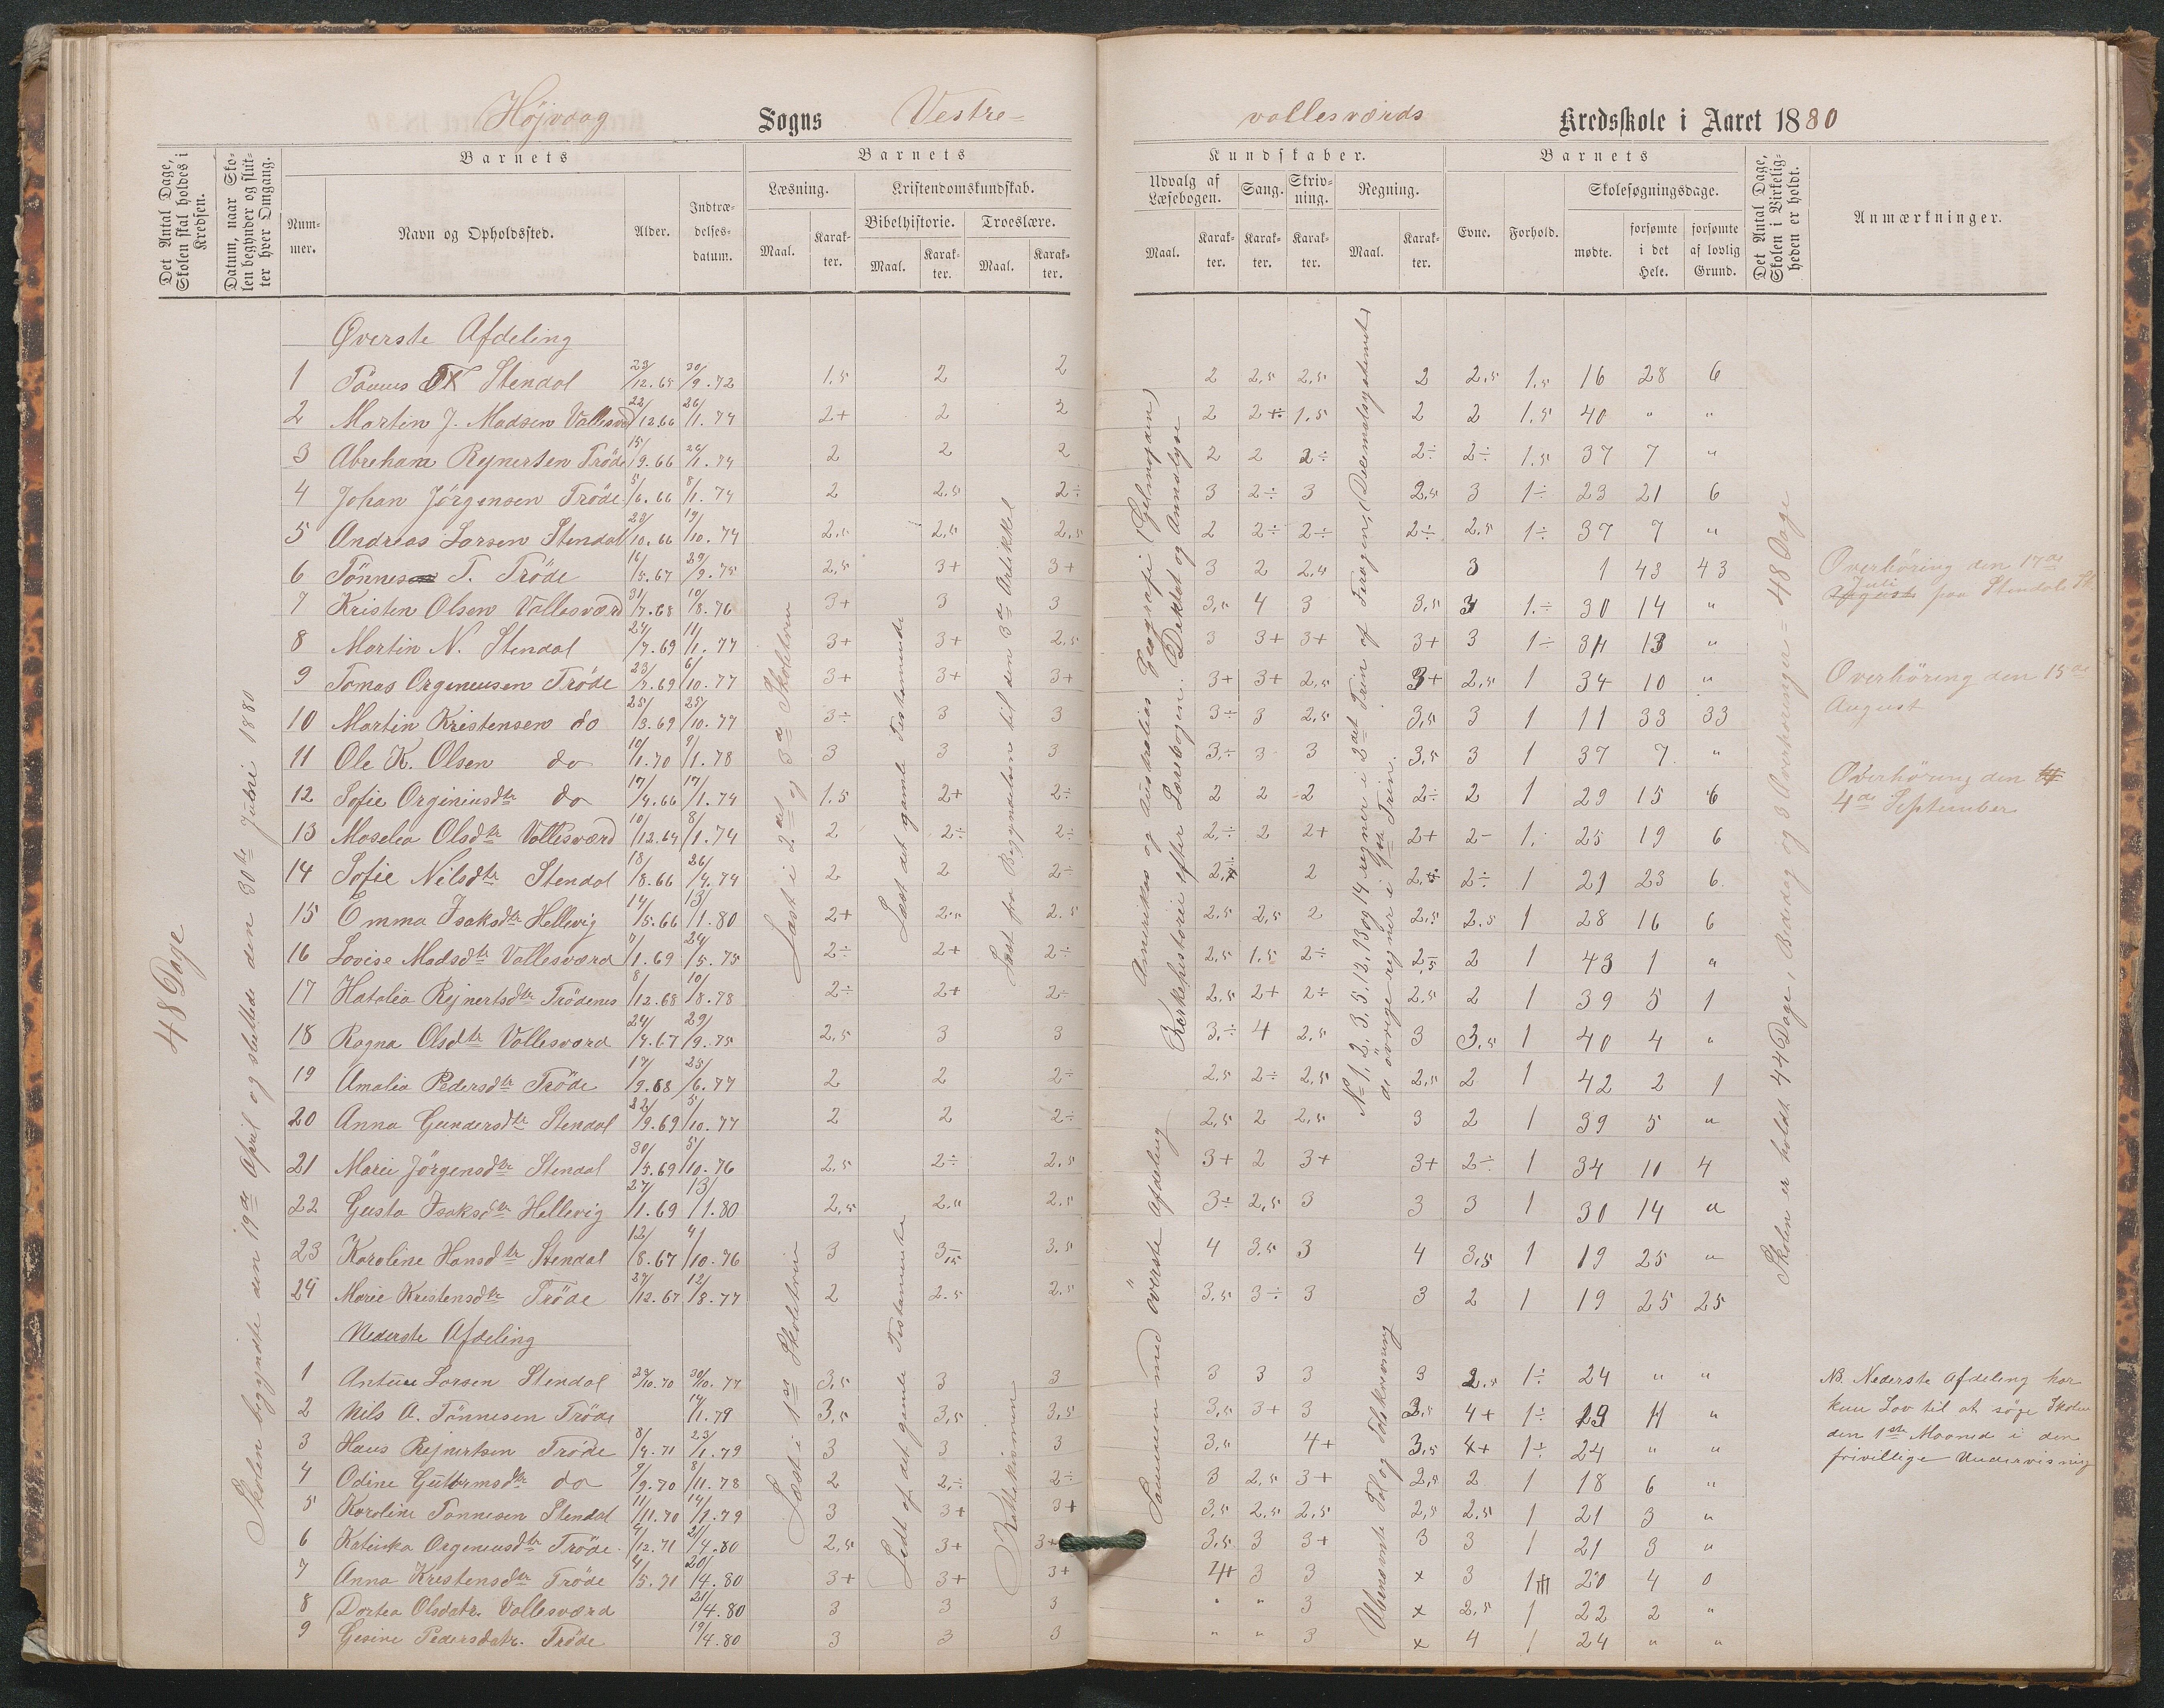 Højvaag Sogns Vestre-
vallesværds Kredsskole i Aaret 1880
Det Antal Dage, Skolen skal holdes i Kredsen.
Datum, naar Skolen begynder og slutter hver Omgang.
Barnets
Nummer.
Navn og Opholdssted.
Alder.
Indtrædelses-datum.
Barnets
Læsning.
Maal.
Karakter.
Kristendomskundskab.
Bibelhistorie.
Maal.
Karakter.
Troeslære.
Maal.
Karakter.
Kundskaber.
Udvalg af Læsebogen.
Maal.
Karakter.
Sang.
Karakter.
Skrivning.
Karakter.
Regning.
Maal.
Karakter.
Barnets
Evne.
Forhold.
Skolesøgningsdage.
mødte.
forsømte i det Hele.
forsømte af lovlig Grund.
Det Antal Dage, Skolen i Virkeligheden er holdt.
Anmærkninger.
48 Dage
Skolen begyndte den 19de April og sluttede den 30te Juli 1880
Læst i 2det og 3de Skoletrin
Læst det gamle Testamente
Læst fra Begyndelsen til den 3de Artikkel
Amerikas og Australies Geografi
Kirkehistorie efter Læsebogen. Diktat og Analyse
No 1, 2, 3, 5, 12, 13 og 14 regner i 2det Trin af Forøgen, (Decimalsystemet)
de øvrige regner i 1ste Trin.
Skolen er holdt 44 Dage, 1 Bededag og 3 Overhøringer = 48 Dage
Øverste Afdeling
1 Tönnes T Stendal 23/12.65 30/9.72 1.5 2 2 2 2,5 2,5 2 2,5 1,5 16 28 6
2 Martin J. Madsen Vallesværd 22/12.66 26/1.74 2+ 2 2 2 2+ 1.5 2 2 1.5 40 " "
3 Abraham Rejnertsen Tröde 15/9.66 26/1.74 2 2 2 2 2 2÷ 2÷ 2÷ 1.5 37 7 "
4 Johan Jörgensen Tröde 5/6.66 8/1.74 2 2.5 2÷ 3 2÷ 3 2,5 3 1÷ 23 21 6
5 Andreas Larsen Stendal 23/10.66 19/10.74 2.5 2,5 2,5 2 2÷ 2÷ 2÷ 2,5 1÷ 37 7 "
6 Tönnes T. Tröde 16/5.67 29/9.75 2,5 3+ 3+ 3 2 2,5 3 1 43 43
7 Kristen Olsen Vallesværd 31/7.68 10/8.76 3+ 3 3 3,5 4 3 3,5 3 1÷ 30 14 "
8 Martin N. Stendal 24/7.69 11/1.77 3+ 3+ 2,5 3 3+ 3+ 3+ 3 1÷ 31 13 "
9 Tomas Orgeneusen Tröde 23/7.69 6/10.77 3+ 3+ 3+ 3+ 3+ 2,5 3+ 2,5 1 34 10 "
10 Martin Kristensen do 25/3.69 25/10.77 3÷ 3 3 3÷ 3 2,5 3,5 3 1 11 33 33
11 Ole K. Olsen do 10/1.70 9/1.78 3 3 3 3÷ 3 3 3,5 3 1 37 7 "
12 Sofie Orginiusdtr do 17/4.66 17/1.74 1.5 2+ 2÷ 2 2 2 2÷ 2 1 29 15 6
13 Moselia Olsdtr Vallesværd 10/12.64 8/1.74 2 2÷ 2÷ 2÷ 2 2+ 2+ 2- 1. 25 19 6
14 Sofie Nilsdtr Stendal 18/8.66 26/4.74 2 2 2÷ 2 2÷ 2÷ 1 21 23 6
15 Emma Isaksdtr Hellevig 14/5.66 13/1.80 2+ 2,5 2.5 2.5 2,5 2 2,5 2.5 1 28 16 6
16 Lovise Madsdtr Vallesværd 7/1.69 24/5.75 2÷ 2+ 2÷ 2,5 1.5 2÷ 2,5 2 1 43 1 "
17 Hatalia Rejnertsdtr Trödenes 8/12.68 10/8.78 2÷ 2+ 2÷ 2,5 2+ 2÷ 2,5 2 1 39 5 1
18 Ragna Olsdtr Vallesværd 24/4.67 29/9.75 2,5 3 3 3÷ 4 2,5 3 3,5 1 40 4 "
19 Amalia Pedersdtr Tröde 17/9.68 25/6.77 2 2 2÷ 2,5 2÷ 2,5 2,5 2 1 42 2 1
20 Anna Gundersdtr Stendal 22/9.69 5/10.77 2 2 2÷ 2,5 2 2,5 3 2 1 39 5 "
21 Marie Jörgensdtr Stendal 30/5.69 5/10.76 2.5 2÷ 2.5 3+ 2 3+ 3+ 2÷ 1 34 10 4
22 Gusta Isaksdtr Hellevig 27/1.69 13/1.80 2,5 2.5 2.5 3÷ 2,5 3 3 3 1 30 14 "
23 Karoline Hansdtr Stendal 12/8.67 4/10.76 3 3,5 3.5 4 3.5 3 4 3,5 1 19 25 "
24 Marie Kristensdtr Tröde 27/12.67 12/8.77 2 2.5 2.5 3,5 3÷ 3 3 2 1 19 25 25
Nederste Afdeling
Læst i 1ste Skoletrin
Ledt af det gamle Testamente
Katekismen
Sammen med överste Afdeling
Ubenævnte Tal og Talskrivning
1 Antun Larsen Stendal 23/10.70 30/10.77 3,5 3 3 3 3 3 3 2,5 1÷ 24 " "
2 Nils A. Tönnesen Tröde 14/1.79 3,5 3,5 3,5 3,5 3+ 3 3,5 4+ 1÷ 19 "
3 Hans Rejnertsen Tröde 8/4.71 23/1.79 3 3 3 3,5 4+ 3,5 4+ 1÷ 24 " "
4 Odine Guttormsdtr do 9/9.70 8/11.78 2 2÷ 2÷ 3 2,5 3+ 2,5 2 1 18 6 "
5 Karoline Tönnesen Stendal 11/11.70 14/1.79 3 3+ 3+ 3,5 2,5 2,5 2,5 2.5 1 21 3 "
6 Katinka Orgeneusdtr Tröde 4/12.71 21/4.80 2,5 3+ 3+ 3,5 3 3+ 3 3 1 21 3 "
7 Anna Kristensdtr Tröde 4/5.71 20/4.80 3+ 3+ 3+ 4+ 3 3 x 3 1 20 4 0
8 Dortea Olsdatr. Vallesværd 21/4.80 3 3 3 " " 3 x 2,5 1 22 2 "
9 Gesine Pedersdatr. Tröde 19/4.80 3 3 3 " " 3 x 4 1 24 " "
Overhöring den 17de
Juli
August paa Stendal
Overhöring den 15de
August
Overhöring den
4de September
NB. Nederste Afdeling har
kun Lov til at söge Skolen
den 1ste Maaned i den
frivillige Undervisning